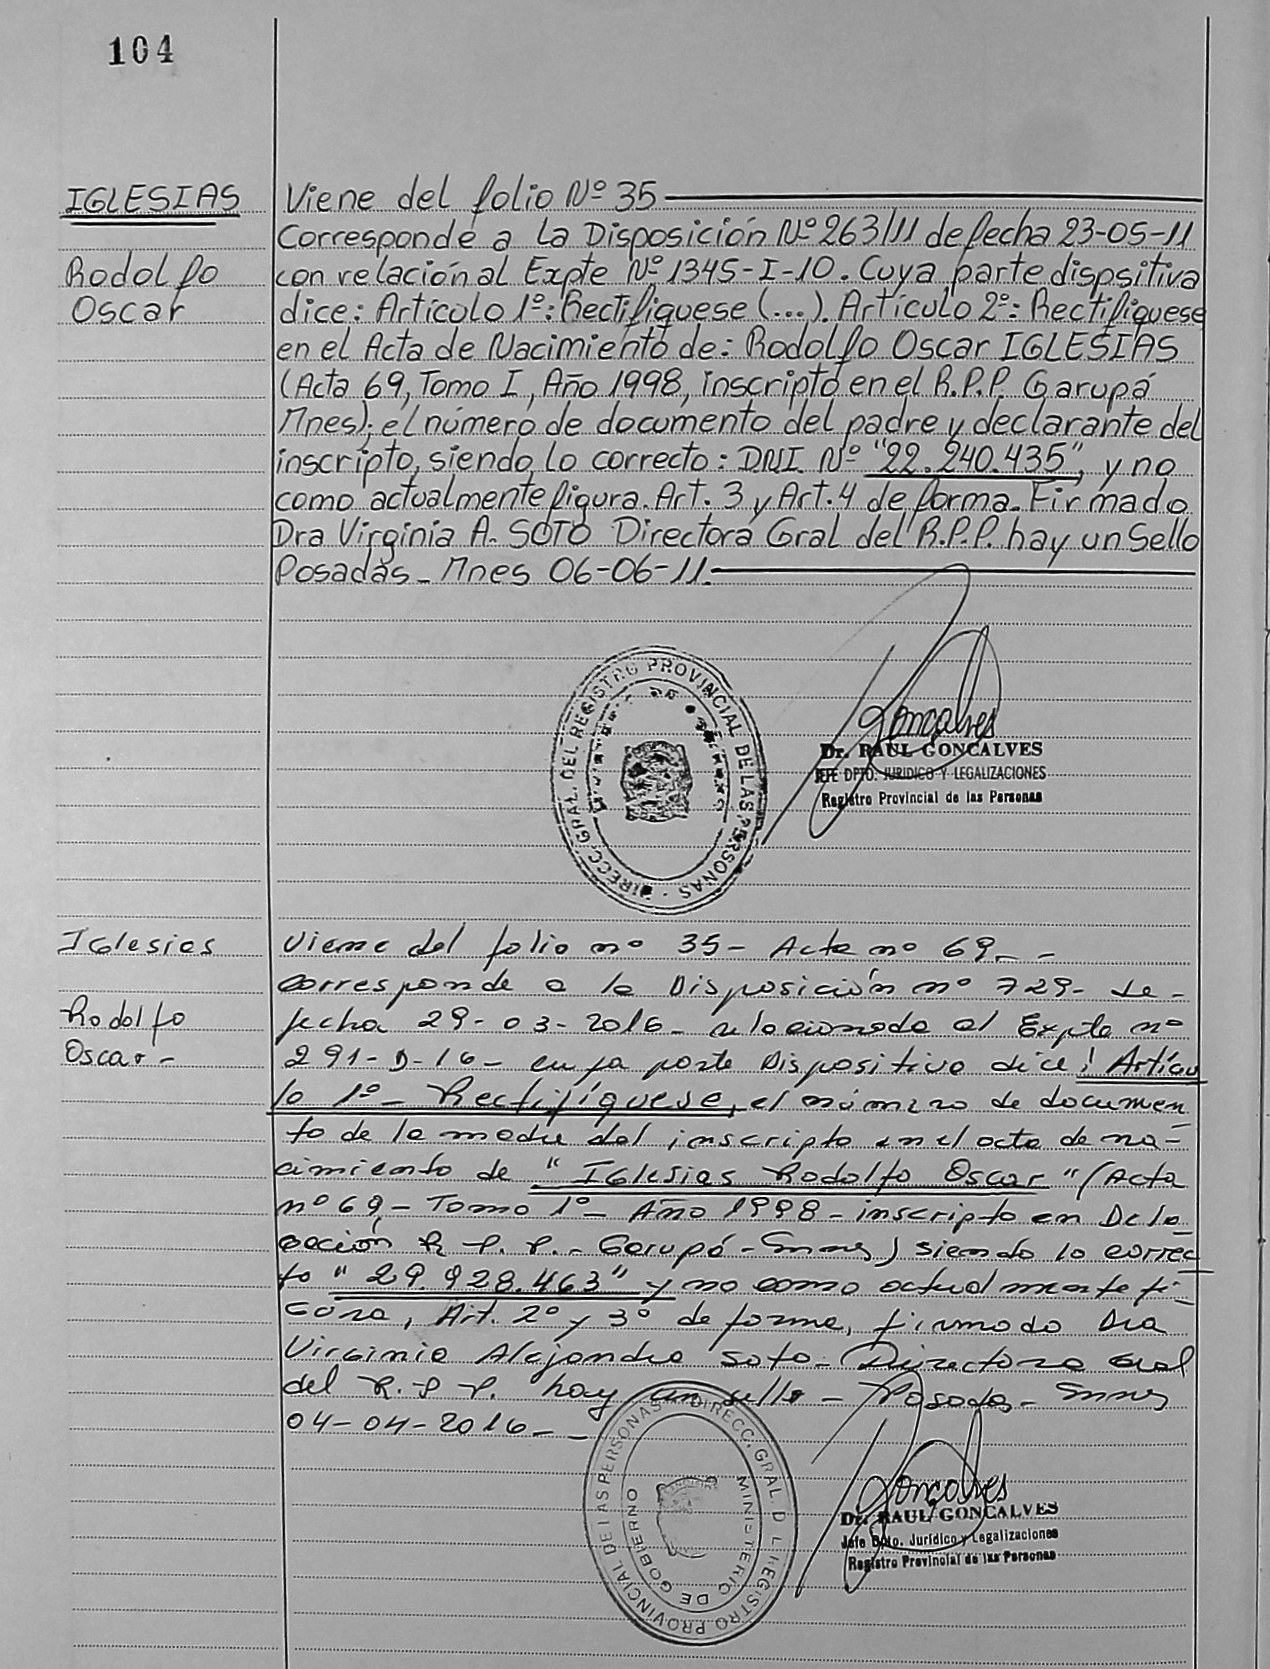 104
IGLESIAS
Rodolfo
Oscar
Viene del folio Nº 35
Corresponde a La Disposición Nº 263/11 de fecha 23-05-11
con relación al Expte Nº 1345-I-10. Cuya parte dispsitiva
dice: Artículo 1º: Rectifíquese (...). Artículo 2º: Rectifíquese
en el Acta de Nacimiento de: Rodolfo Oscar IGLESIAS
(Acta 69, Tomo I, Año 1998, inscripto en el R.P.P. Garupá
Mnes); el número de documento del padre y declarante del
inscripto, siendo lo correcto: DNI. Nº "22.240.435", y no
como actualmente figura. Art. 3 y Art. 4 de forma. Firmado
Dra Virginia A. SOTO Directora Gral del R.P.P. hay un Sello
Posadas - Mnes 06-06-11.
DIRECC. GRAL. DEL REGISTRO PROVINCIAL DE LAS PERSONAS
Goncalves
Dr. RAUL GONCALVES
JEFE DPTO. JURIDICO Y LEGALIZACIONES
Registro Provincial de las Personas
Iglesias
Rodolfo
Oscar -
Viene del folio nº 35 - Acta nº 69 - -
corresponde a la Disposición nº 729 - de -
fecha 29-03-2016 - relacionado al Expte nº
291-D-16 - cuya parte Dispositiva dice: Artícu
lo 1º - Rectifíquese, el número de documen
to de la madre del inscripto en el acta de na-
cimiento de "Iglesias Rodolfo Oscar" (Acta
nº 69 - Tomo 1º - Año 1998 - inscripto en Dele
gación R.P.P. - Garupá - Mnes) siendo lo correc
to "29.928.463" y no como actualmente fi-
gura, Art. 2º y 3º de forma, firmado Dra
Virginia Alejandra Soto - Directora Gral
del R.P.P. hay un sello - Posadas - Mnes
04-04-2016 - -
DIRECC. GRAL. DEL REGISTRO PROVINCIAL DE LAS PERSONAS
MINISTERIO DE GOBIERNO
Goncalves
Dr. RAUL GONCALVES
Jefe Dpto. Jurídico y Legalizaciones
Registro Provincial de las Personas